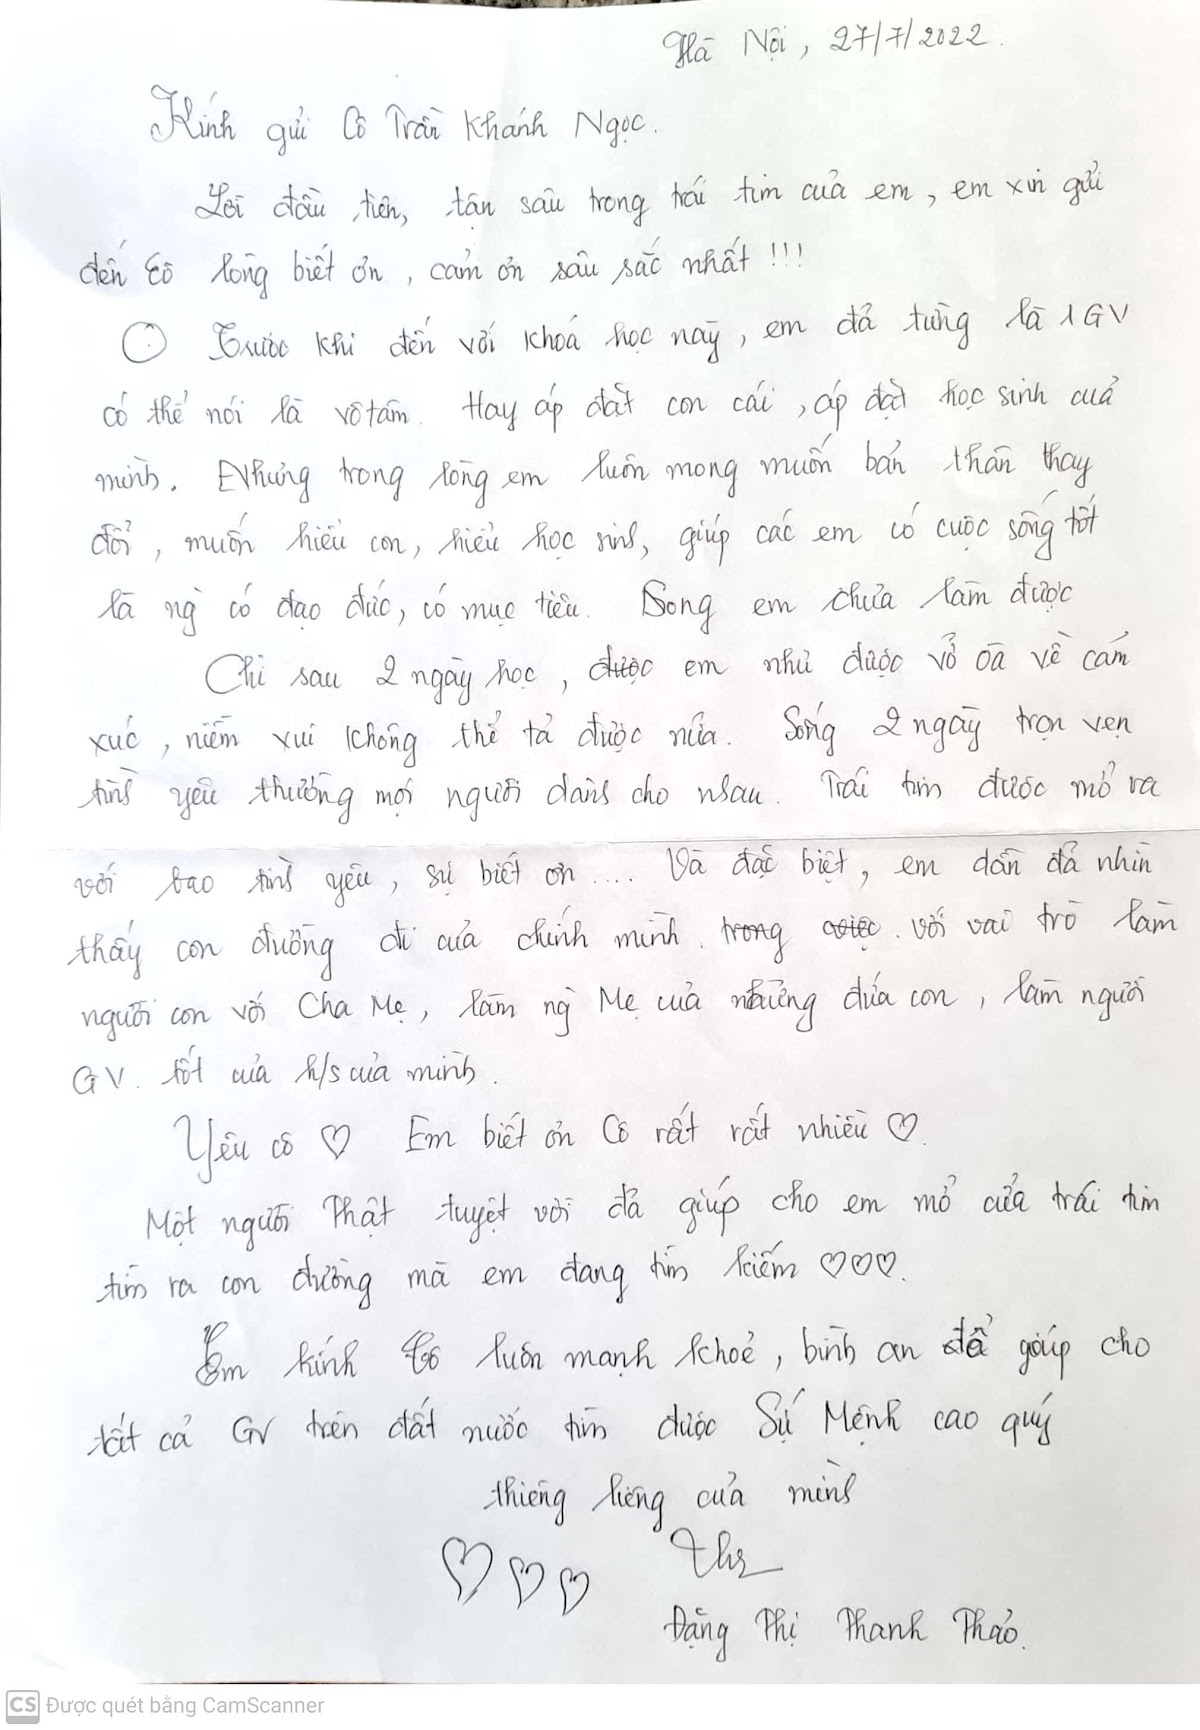 Hà Nội, 27/7/2022.
Kính gửi Cô Trần Khánh Ngọc.
Lời đầu tiên, tận sâu trong trái tim của em, em xin gửi
đến Cô lòng biết ơn, cảm ơn sâu sắc nhất !!!
Trước khi đến với khoá học này, em đã từng là 1 GV
có thể nói là vô tâm. Hay áp đặt con cái, áp đặt học sinh của
mình. Nhưng trong lòng em luôn mong muốn bản thân thay
đổi, muốn hiểu con, hiểu học sinh, giúp các em có cuộc sống tốt
là ng` có đạo đức, có mục tiêu. Song em chưa làm được
Chỉ sau 2 ngày học, được em như được vỡ oà về cảm
xúc, niềm vui không thể tả được nữa. Sống 2 ngày trọn vẹn
tình yêu thương mọi người dành cho nhau. Trái tim được mở ra
với bao tình yêu, sự biết ơn .... Và đặc biệt, em dần đã nhìn
thấy con đường đi của chính mình. trong việc. với vai trò làm
người con với Cha Mẹ, làm ng` Mẹ của những đứa con, làm người
GV. tốt của h/s của mình.
Yêu cô ♡ Em biết ơn Cô rất rất nhiều ♡.
Một người Thật tuyệt vời đã giúp cho em mở cửa trái tim
tìm ra con đường mà em đang tìm kiếm ♡♡♡.
Em kính Cô luôn mạnh khoẻ, bình an để giúp cho
tất cả GV trên đất nước tìm được Sứ Mệnh cao quý
thiêng liêng của mình
♡ ♡ ♡
Đặng Thị Thanh Thảo.
CS Được quét bằng CamScanner